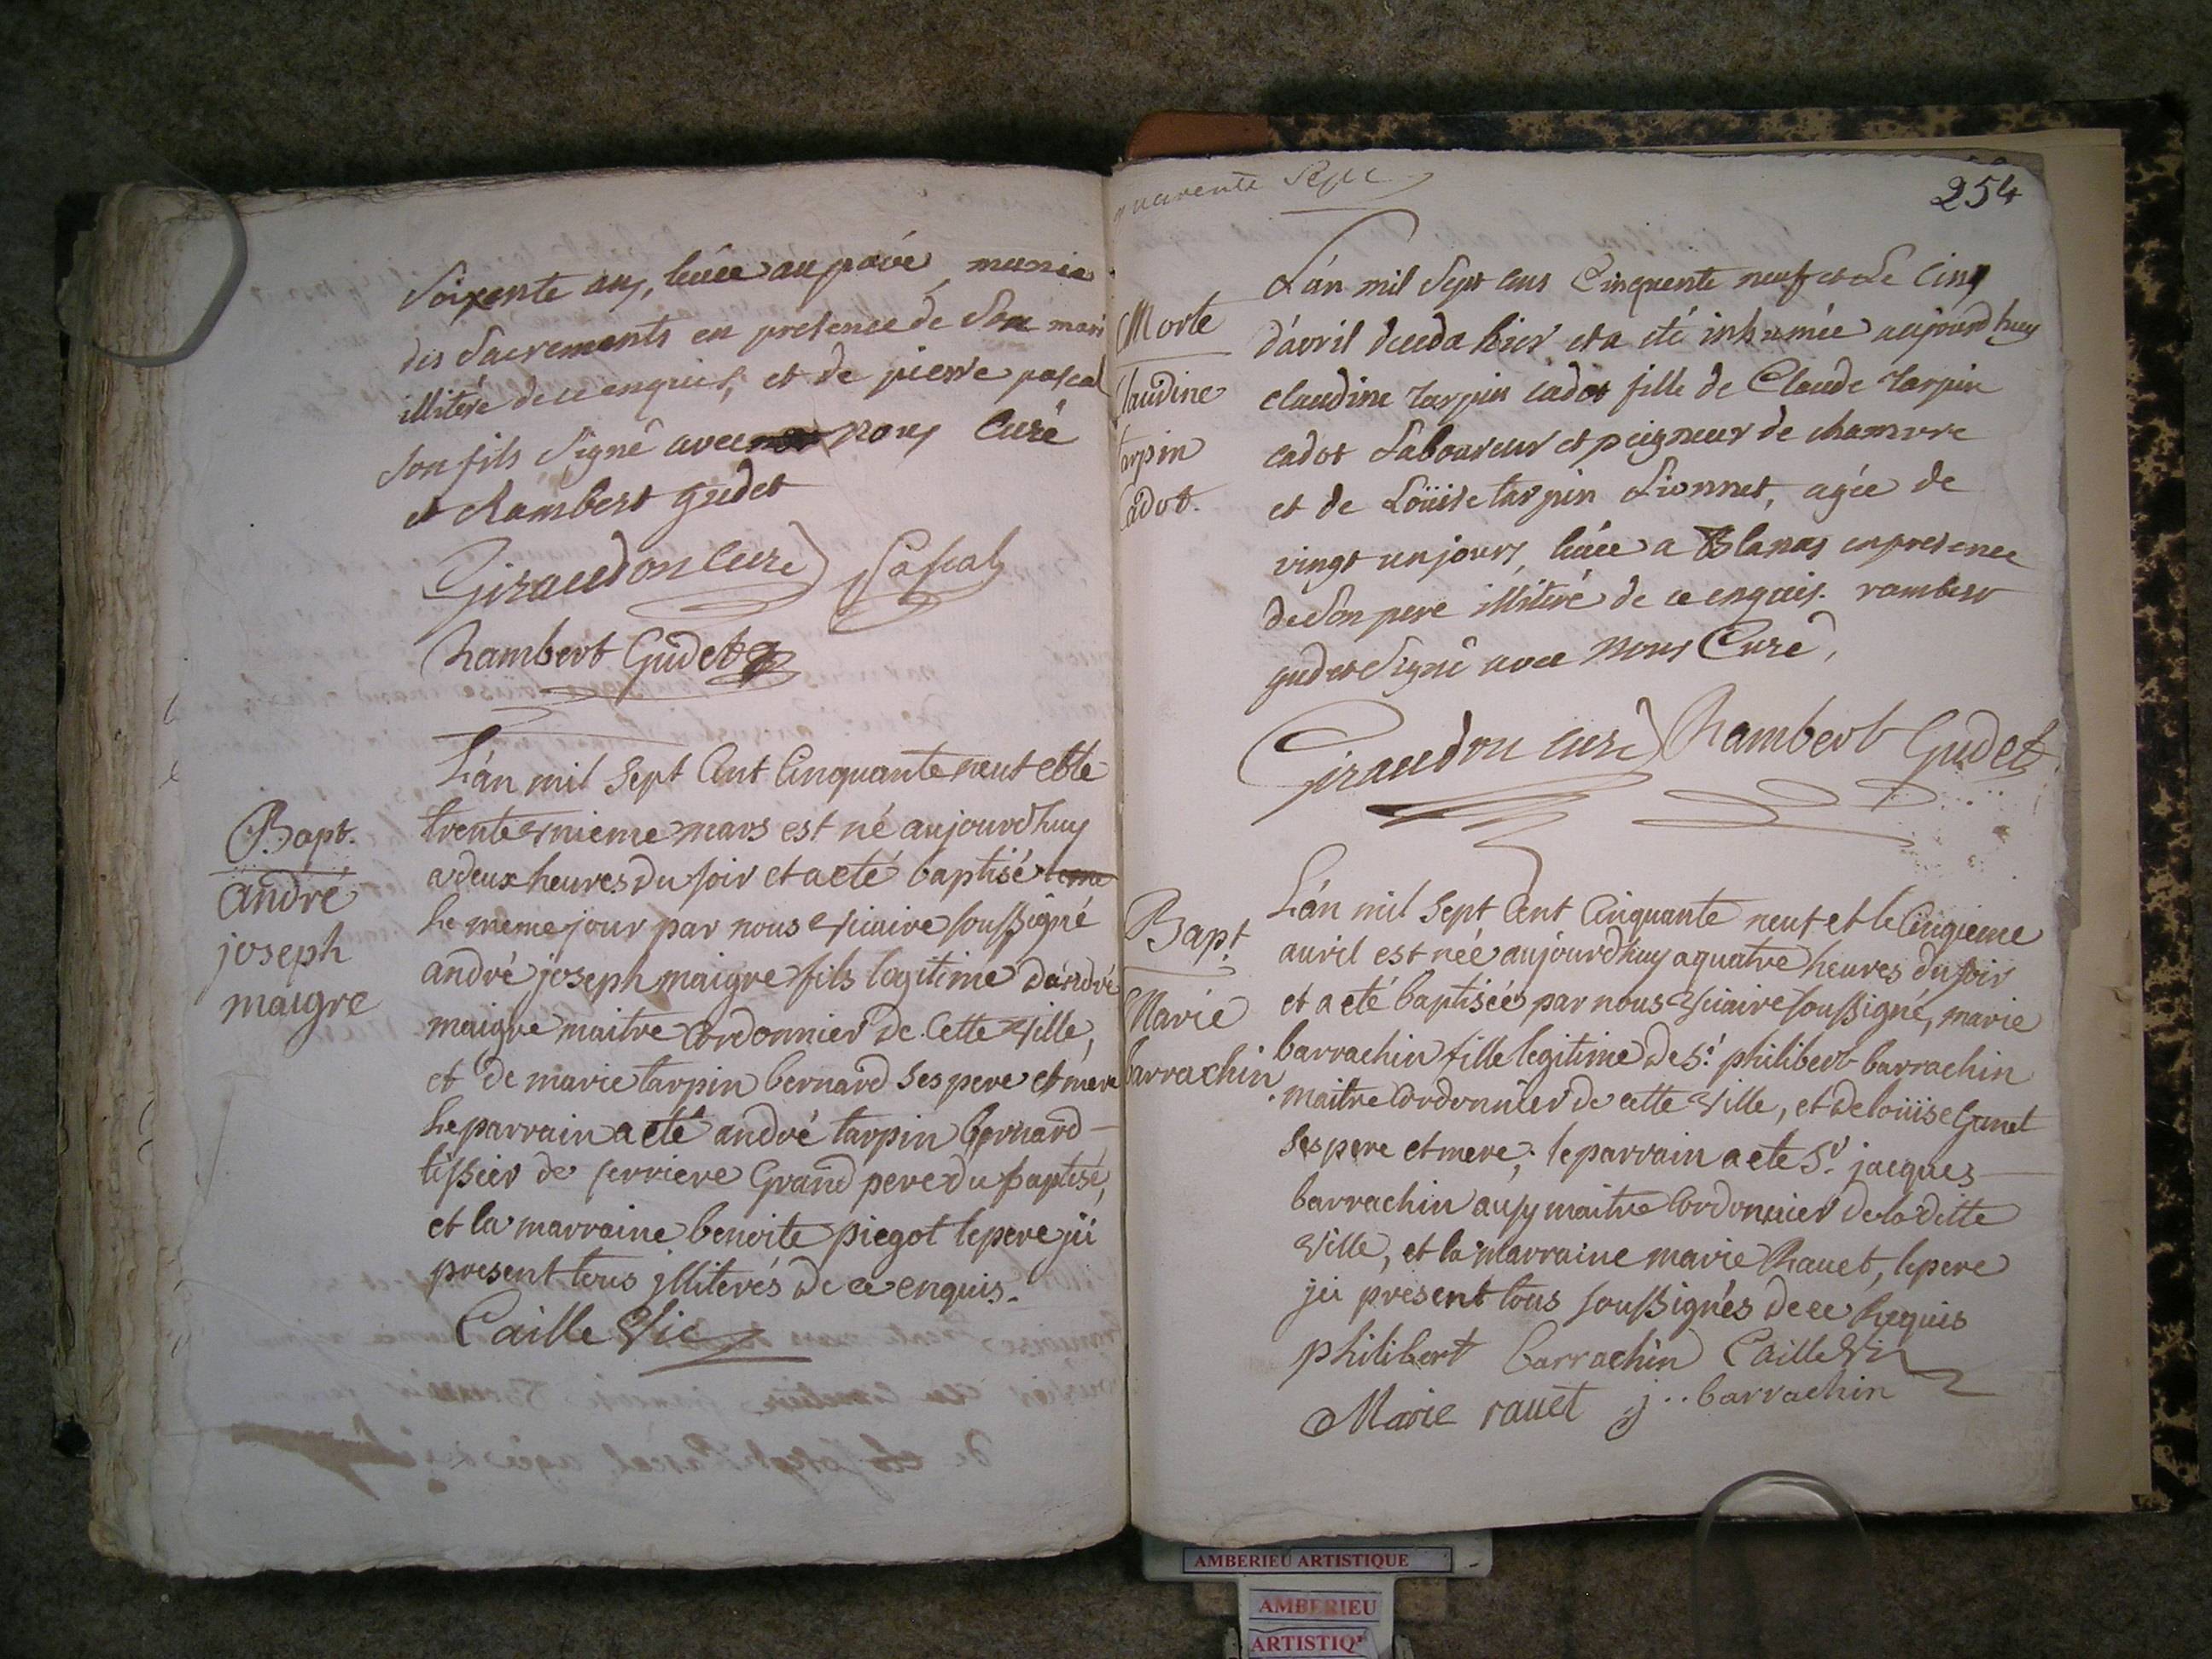 Soixente ans, levée au pavé, munie
des Sacrements en presence de Son mari
illiteré de ce enquis, et de pierre pascal
Son fils Signé avec nous Curé
et Rambert gudet
Giraudon Curé Pascal
Rambert Gudet
Bapt.
andré
joseph
maigre
L'an mil Sept Cent Cinquante neuf et le
trente vnieme mars est né aujourdhuy
a deux heures du soir et a eté baptisé
le meme jour par nous vicaire soussigné
andré joseph maigre fils legitime d'andré
maigre maitre Cordonnier de Cette ville,
et de marie tarpin bernard ses pere et mere
le parrain a eté andré tarpin bernard
tissier de serriere Grand pere du baptisé,
et la marraine benoite piegot le pere ici
present tous jlliterés de ce enquis.
Caille Vic
quarente Sept
254
Morte
Claudine
tarpin
Cadot.
L'an mil Sept cens Cinquente neuf et Le Cinq
d'avril deceda hier et a eté inhumée aujourdhuy
claudine tarpin cadot fille de Claude tarpin
cadot Laboureur et peigneur de chanvre
et de Loüise tarpin Lionnet, agée de
vingt un jours, levée a Blanas en presence
de Son pere illiteré de ce enquis. rambert
gudet Signé avec nous Curé,
Giraudon curé Rambert Gudet
Bapt.
Marie
barrachin
L'an mil Sept Cent Cinquante neuf et le Cinqieme
auril est née aujourdhuy a quatre heures du soir
et a eté baptisée par nous vicaire soussigné, marie
barrachin fille legitime de Sr. philibert barrachin
maitre Cordonnier de cette ville, et de loüise Gunet
Ses pere et mere; le parrain a ete Sr. jacques
barrachin aussy maitre Cordonnier de la ditte
ville, et la marraine marie Rauet, le pere
ici present tous soussignés de ce requis
philibert barrachin Caille Vic
Marie rauet j.. barrachin
AMBERIEU ARTISTIQUE
AMBERIEU
ARTISTIQ